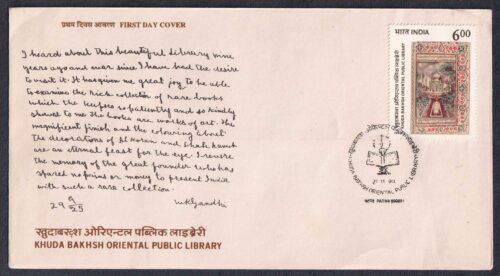 प्रथम दिवस आवरण FIRST DAY COVER
I heard about this beautiful library nine
years ago and ever since I have had the desire
to visit it. It has given me great joy to be able
to examine the rich collection of rare books
which the keepers so patiently and so kindly
showed to me. The books are works of art. The
magnificent finish and the colouring about
the decorations of Al Koran and Shah Namah
are an eternal feast for the eye. I revere
the memory of the great founder who has
spared no pains or money to present India
with such a rare collection.
29 9/25 MKGandhi
खुदाबख़्श ओरिएन्टल पब्लिक लाइब्रेरी
KHUDA BAKHSH ORIENTAL PUBLIC LIBRARY
भारत INDIA 6.00
खुदाबख़्श ओरिएन्टल पब्लिक लाइब्रेरी
KHUDA BAKHSH ORIENTAL PUBLIC LIBRARY
खुदाबख़्श ओरिएन्टल पब्लिक लाइब्रेरी
KHUDA BAKHSH ORIENTAL PUBLIC LIBRARY
21.11.94
पटना PATNA